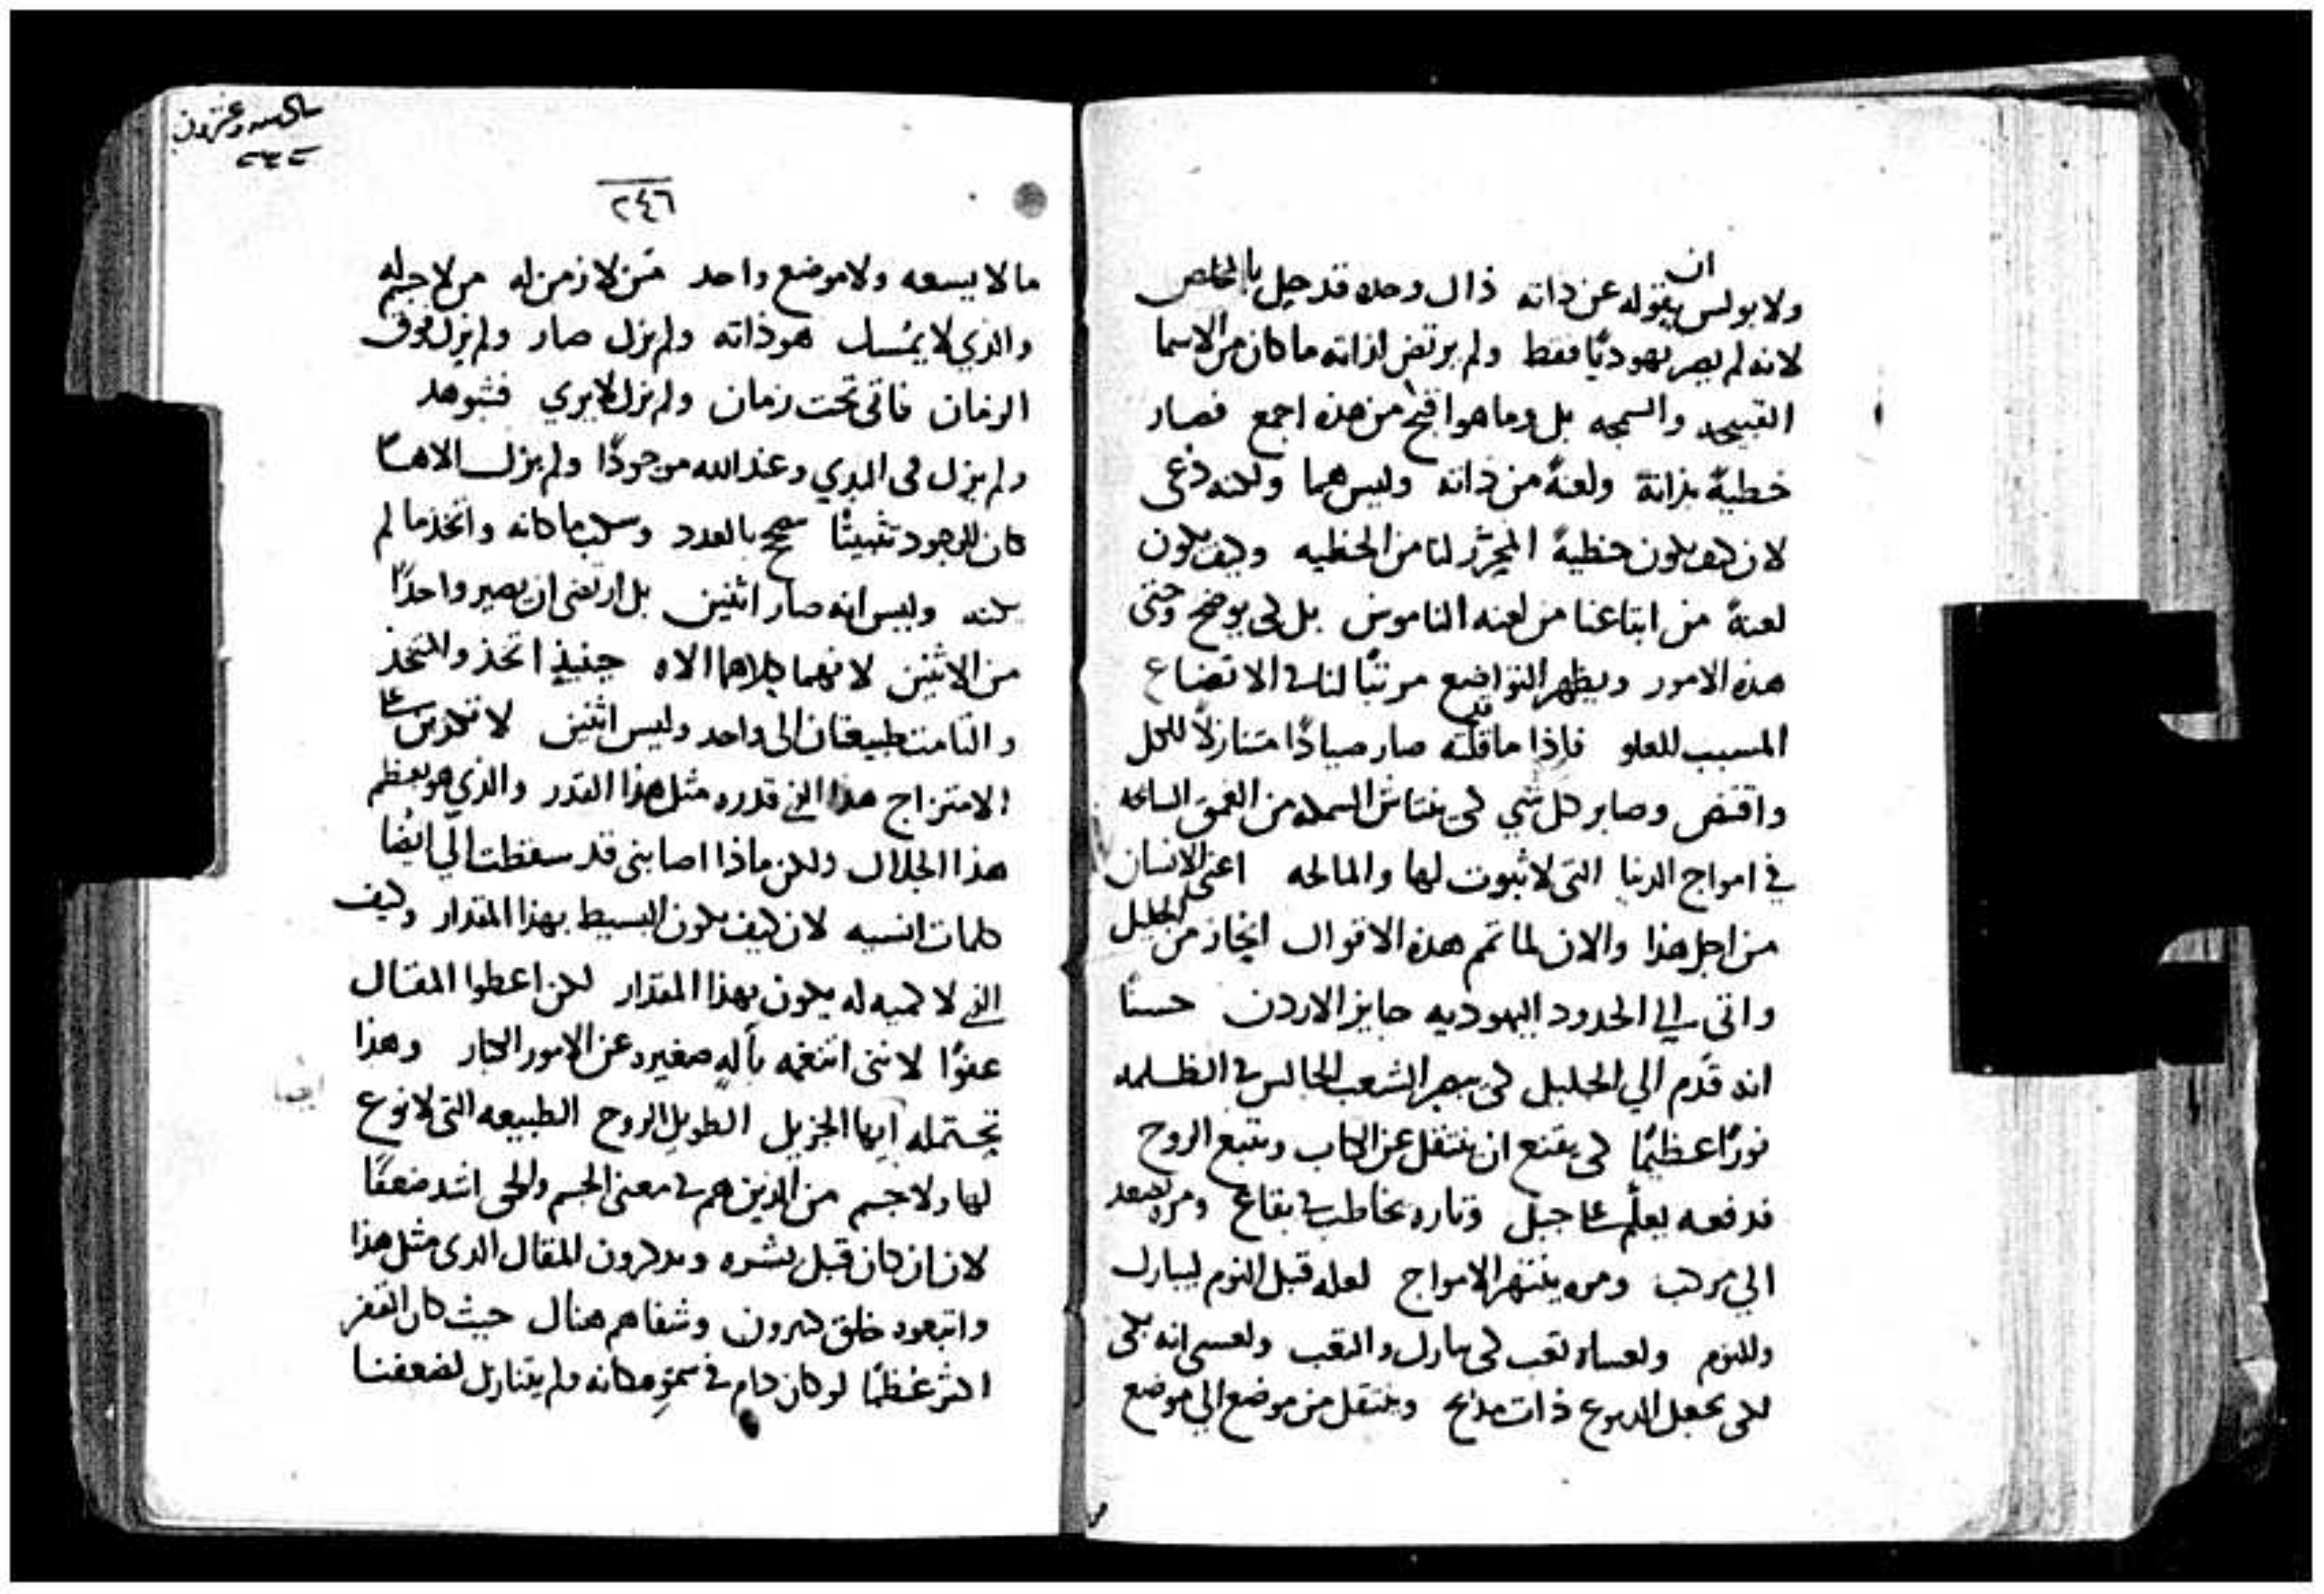 ان
ولا بولس يقوله عن ذاته ذاك وحده قد حيل بالمخلص
لانه لم يصر يهوديًا فقط ولم يرتض لذاته ما كان من الاسما
القبيحه والسمجه بل وما هو اقبح من هذه اجمع فصار
خطيةً بذاتة ولعنةً من ذاته وليس هما ولكنه دعى
لان كيف يكون خطيةً المحرر لنا من الخطيه وكيف يكون
لعنةً من ابتاعنا من لعنه الناموس بل لكي يوضح وحتى
هذه الامور ويظهر التواضع مرتبًا لنا في الاتضاع
المسبب للعلو فاذا ما قد قلته صار صيادًا متنازلاً للكل
واقتنص وصابر كل شي لكى ينتاش السمكه من العمق السابحه
في امواج الدنيا التي لا ثبوت لها والمالحه اعنى الانسان
من اجل هذا والان لما تمم هذه الاقوال انحاز من الجليل
واتى الي الحدود اليهوديه جايز الاردن حسنًا
انه قدم الي الجليل لكى يبصر الشعب الجالس في الظلمه
نورًا عظيمًا لكى يقنع ان ينتقل عن الكتاب ويتبع الروح
فدفعه يعلّم على جبل وتاره يخاطب في بقاع ومره يصعد
الي مركب ومره ينتهر الامواج لعله قبل النوم ليبارك
وللنوم ولعساه تعب لكى يبارك والتعب ولعسى انه بكى
لكى يجعل الدموع ذات مدايح وينتقل من موضع الي موضع
وعشرون
٢٤٦
ما لا يسعه ولا موضع واحد من لا زمن له من لا جسم له
والذي لا يمسك هو ذاته ولم يزل صار ولم يزل فوق
الزمان فاتى تحت زمان ولم يزل لا يري فشوهد
ولم يزل في البدي وعند الله موجودًا ولم يزل الاهًا
كان للوجود تثبيتًا صحح بالعدد وسلب ما كانه واتخذ ما لم
يكنه وليس انه صار اثنين بل ارتضى ان يصير واحدًا
من الاثنين لانهما كلاهما الاه حينيذٍ اتخذ والمتخذ
والتامت طبيعتان الى واحد وليس اثنين لا تكذبن على
الامتزاج هذا الذي قدره مثل هذا القدر والذي هو بعظم
هذا الجلال ولكن ماذا اصابنى قد سقطت الي ايضًا
كلمات انسيه لان كيف يكون البسيط بهذا المقدار وكيف
الذي لا كميه له يكون بهذا المقدار لكن اعطوا المقال
عفوًا لاننى انتغمه بألهٍ صغيره عن الامور الكبار وهذا
يحتمله ايها الجزيل الطويل الروح الطبيعه التى لا نوع
لها ولا جسم من الذين هم في معنى الجسم والحى اشد ضعفًا
لان ان كان قبل بشره ويذكرون للمقال الذى مثل هذا
واتبعوه خلق كثيرون وشفاهم هناك حيث كان القفر
اكثر عظمًا لو كان دام في سموِ مكانه ولم يتنازل لضعفنا